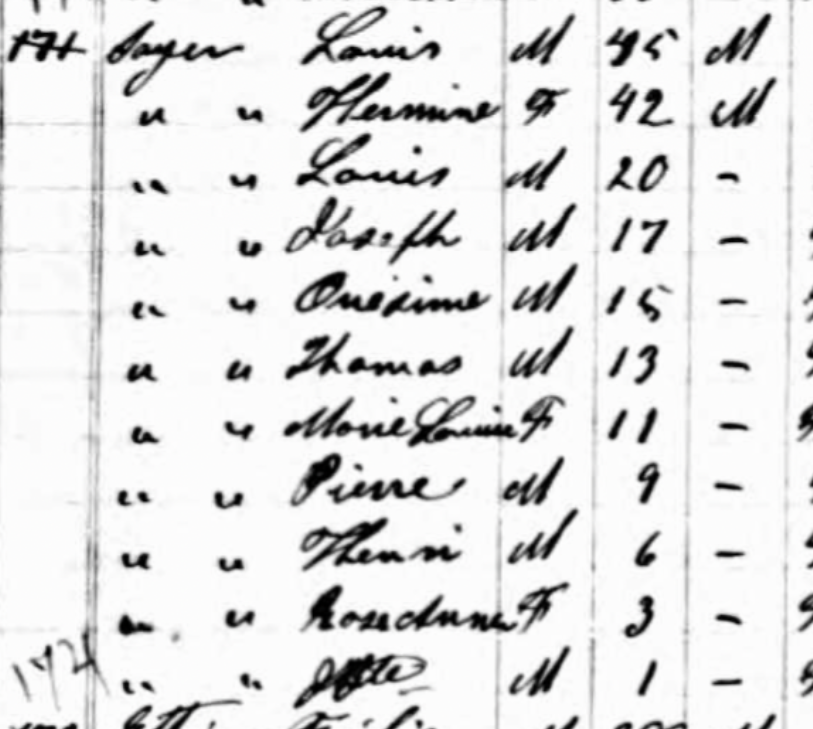 171 Sayer Louis M 45 M
" " Hermine F 42 M
" " Louis M 20 -
" " Joseph M 17 -
" " Onésime M 15 -
" " Thomas M 13 -
" " Marie Louise F 11 -
" " Pierre M 9 -
" " Henri M 6 -
" " Rose Anna F 3 -
" " M 1 -